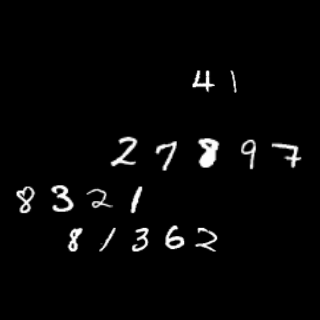 41
27897
8321
81362